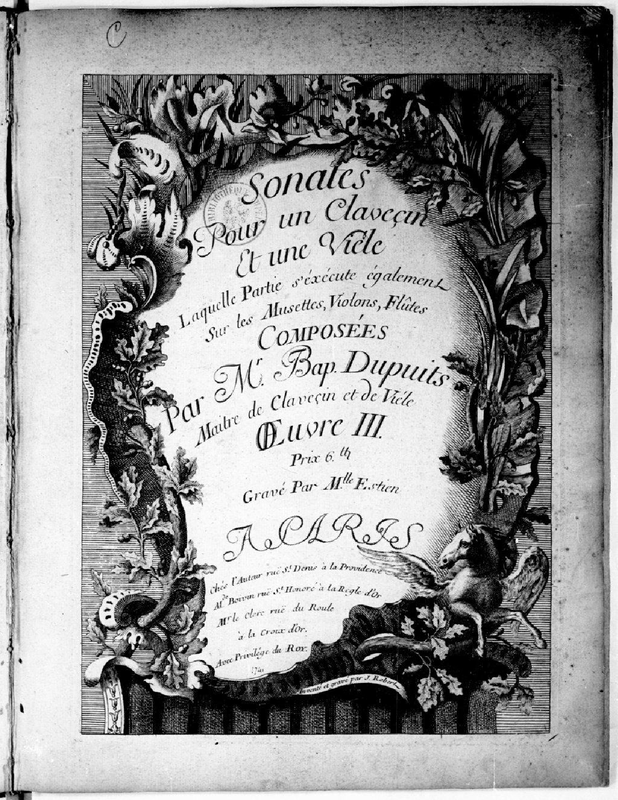 C
Sonates
Pour un Claveçin
Et une Viéle
Laquelle Partie s'éxécute également
Sur les Musettes, Violons, Flûtes
COMPOSÉES
Par Mr. Bap. Dupuits
Maitre de Claveçin et de Viéle
Œuvre III.
Prix 6.tt
Gravé Par Mlle Estien
A PARIS
Chés l'Auteur ruë St. Denis à la Providence
Me. Boivin ruë St. Honoré à la Régle d'Or
Mr. le Clerc ruë du Roule
à la Croix d'Or.
Avec Privilége du Roy.
1741
inventé et gravé par J. Robert